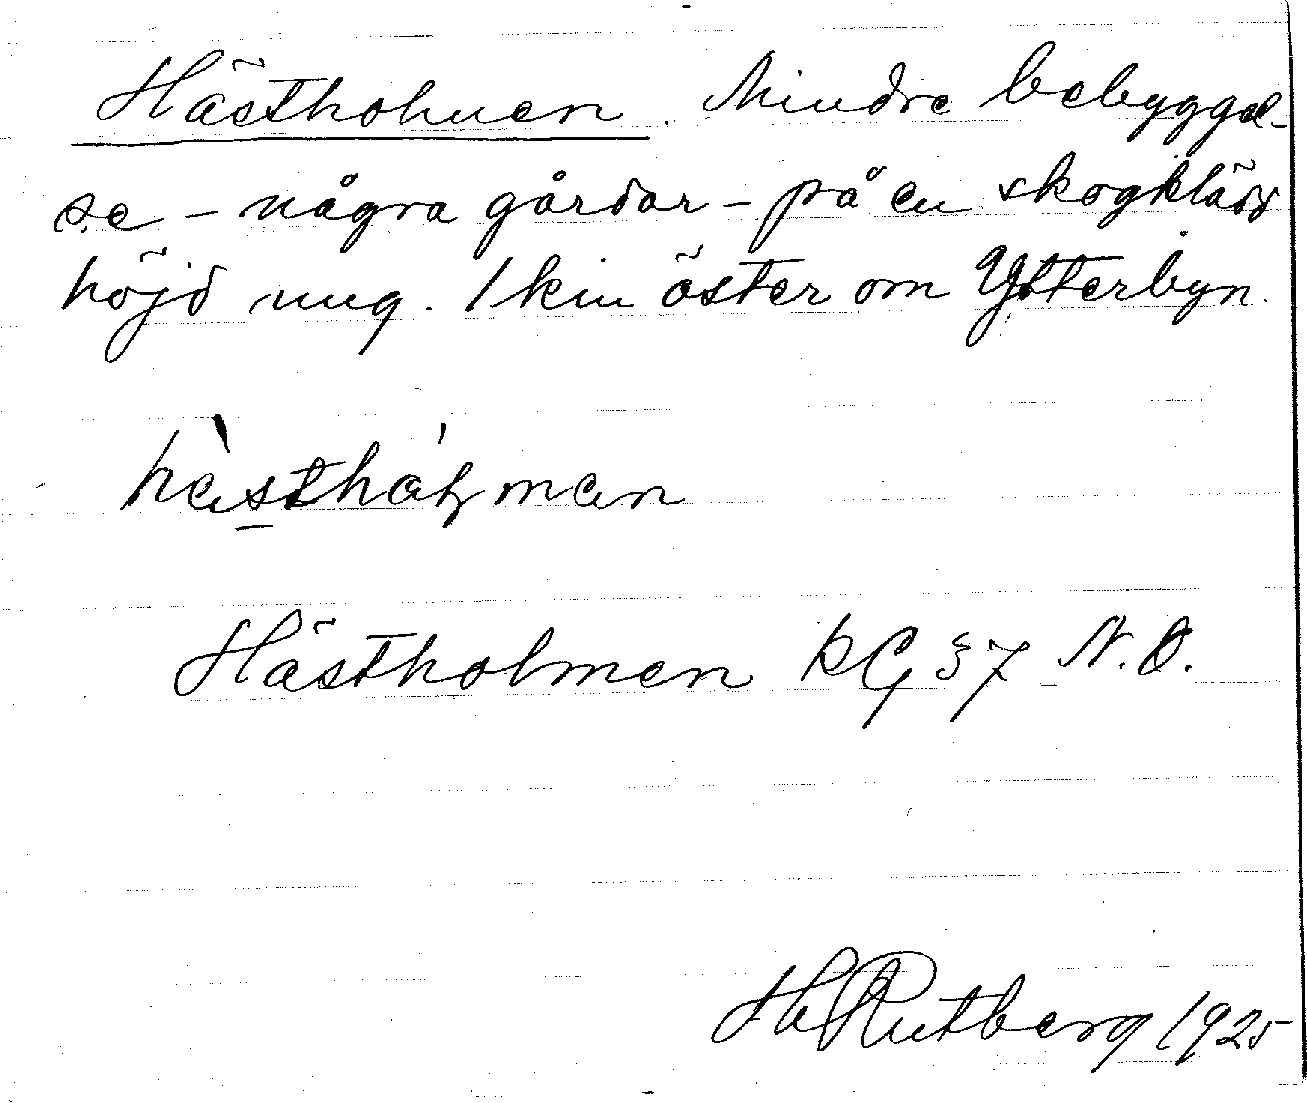 Hästholmen. Mindre bebyggel-
se - några gårdar - på en skogklädd
höjd ung. 1 km öster om Ytterbyn.
hàsthåɫman
Hästholmen KG 37 N.O.
H Rutberg 1925